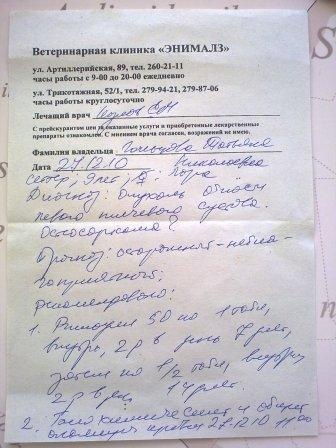 Ветеринарная клиника «ЭНИМАЛЗ»
ул. Артиллерийская, 89, тел. 260-21-11
часы работы с 9-00 до 20-00 ежедневно
ул. Трикотажная, 52/1, тел. 279-94-21, 279-87-06
часы работы круглосуточно
Лечащий врач
С прейскурантом цен за оказанные услуги и приобретенные лекарственные
препараты ознакомлен. С мнением врача согласен, возражений не имею.
Фамилия владельца Татьяна
Дата 27.12.10 Николаевна
сеттер; 9 лет;
Диагноз: Опухоль области
левого плечевого сустава.
Остеосаркома?
Прогноз: осторожный - небла-
гоприятного;
Рекомендовано:
1. Римадил 50 по 1 табл,
внутрь, 2 р в день 7 дней,
затем по 1/2 табл, внутрь,
2 р в день 14 дней.
2. и общий
крови 11 00